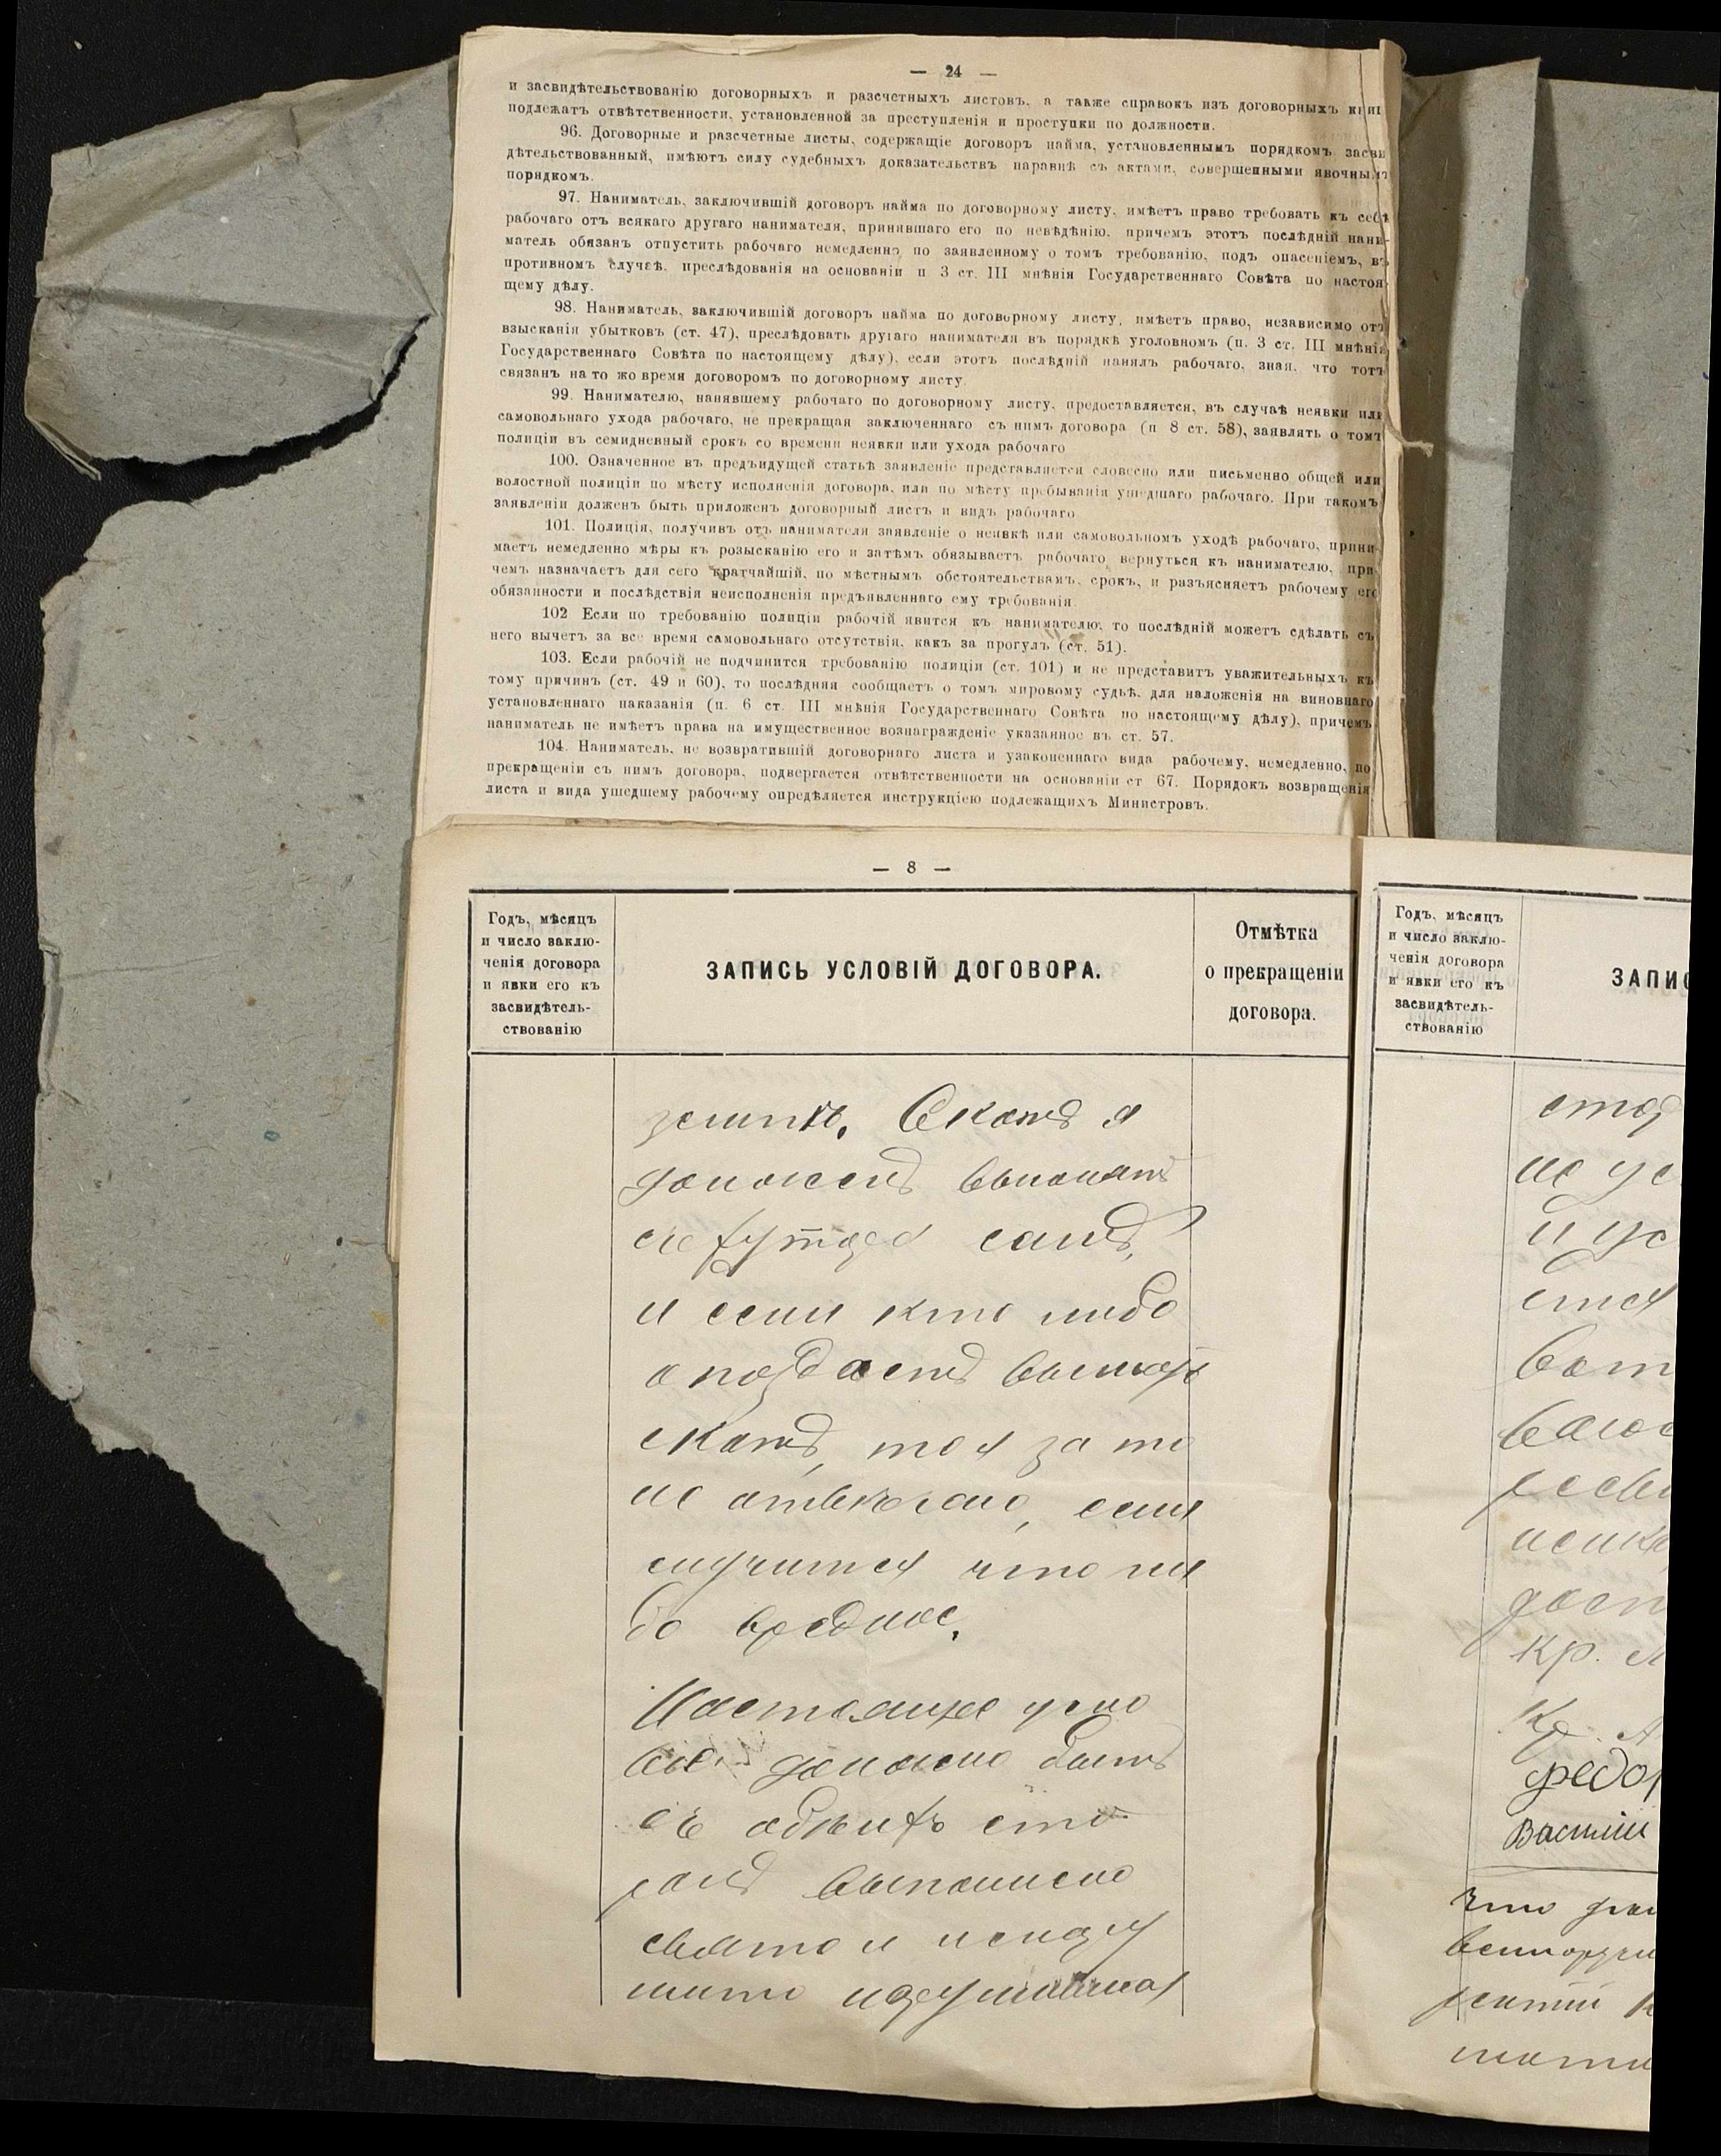 — 24 —
и засвидѣтельствованію договорныхъ и разсчетныхъ листовъ, а также справокъ изъ договорныхъ книг
подлежатъ отвѣтственности, установленной за преступленія и проступки по должности.
96. Договорные и разсчетные листы, содержащіе договоръ найма, установленнымъ порядкомъ засви
дѣтельствованный, имѣютъ силу судебныхъ доказательствъ наравнѣ съ актами, совершенными явочнымъ
порядкомъ.
97. Наниматель, заключившій договоръ найма по договорному листу, имѣетъ право требовать къ себѣ
рабочаго отъ всякаго другаго нанимателя, принявшаго его по невѣдѣнію, причемъ этотъ послѣдній нани-
матель обязанъ отпустить рабочаго немедленно по заявленному о томъ требованію, подъ опасеніемъ, въ
противномъ случаѣ, преслѣдованія на основаніи п 3 ст. III мнѣнія Государственнаго Совѣта по настоя-
щему дѣлу.
98. Наниматель, заключившій договоръ найма по договорному листу, имѣетъ право, независимо отъ
взысканія убытковъ (ст. 47), преслѣдовать другаго нанимателя въ порядкѣ уголовномъ (п. 3 ст. III мнѣнія
Государственнаго Совѣта по настоящему дѣлу), если этотъ послѣдній нанялъ рабочаго, зная, что тотъ
связанъ на то же время договоромъ по договорному листу.
99. Нанимателю, нанявшему рабочаго по договорному листу, предоставляется, въ случаѣ неявки или
самовольнаго ухода рабочаго, не прекращая заключеннаго съ нимъ договора (п 8 ст. 58), заявлять о томъ
полиціи въ семидневный срокъ со времени неявки или ухода рабочаго
100. Означенное въ предъидущей статьѣ заявленіе представляется словесно или письменно общей или
волостной полиціи по мѣсту исполненія договора, или по мѣсту пребыванія ушедшаго рабочаго. При такомъ
заявленіи долженъ быть приложенъ договорный листъ и видъ рабочаго
101. Полиція, получивъ отъ нанимателя заявленіе о неявкѣ или самовольномъ уходѣ рабочаго, прини-
маетъ немедленно мѣры къ розысканію его и затѣмъ обязываетъ рабочаго вернуться къ нанимателю, при-
чемъ назначаетъ для сего кратчайшій, по мѣстнымъ обстоятельствамъ, срокъ, и разъясняетъ рабочему его
обязанности и послѣдствія неисполненія предъявленнаго ему требованія.
102 Если по требованію полиціи рабочій явится къ нанимателю, то послѣдній можетъ сдѣлать съ
него вычетъ за все время самовольнаго отсутствія, какъ за прогулъ (ст. 51).
103. Если рабочій не подчинится требованію полиціи (ст. 101) и не представитъ уважительныхъ къ
тому причинъ (ст. 49 и 60), то послѣдняя сообщаетъ о томъ мировому судьѣ, для наложенія на виновнаго
установленнаго наказанія (п. 6 ст. III мнѣнія Государственнаго Совѣта по настоящему дѣлу), причемъ
наниматель не имѣетъ права на имущественное вознагражденіе указанное въ ст. 57.
104. Наниматель, не возвратившій договорнаго листа и узаконеннаго вида рабочему, немедленно, по
прекращеніи съ нимъ договора, подвергается отвѣтственности на основаніи ст 67. Порядокъ возвращенія
листа и вида ушедшему рабочему опредѣляется инструкціею подлежащихъ Министровъ.
— 8 —
Годъ, мѣсяцъ
и число заклю-
ченія договора
и явки его къ
засвидѣтель-
ствованію
ЗАПИСЬ УСЛОВІЙ ДОГОВОРА.
Отмѣтка
о прекращеніи
договора.
Скотъ я
долженъ выгонять
самъ,
и если кто либо
опоздаетъ выгнать
скотъ, то я за то
не отвѣчаю, если
случится что ли
бо вредное.
Настоящее усло
віе должно быть
съ обѣихъ сто
ронъ выполнено
свято и нену
шимо
Годъ, мѣсяцъ
и число заклю-
ченія договора
и явки его къ
засвидѣтель-
ствованію
ЗАПИС
стор
не ус
и ус
ется
вол
кр.
Кр. А
Федор
Васили
Что